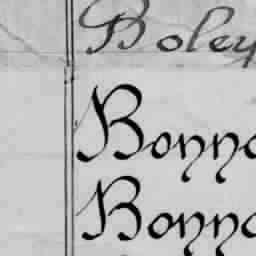 Boley
Bonna
Bonna